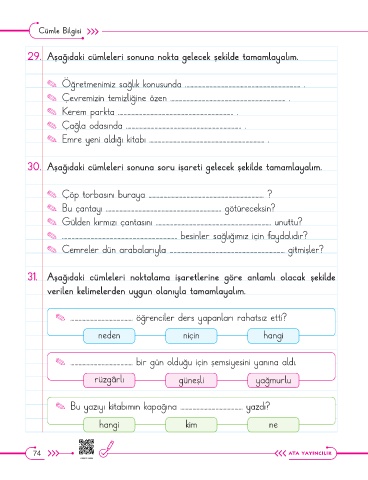 Cümle Bilgisi
29. Aşağıdaki cümleleri sonuna nokta gelecek şekilde tamamlayalım.
Öğretmenimiz sağlık konusunda .................................................. .
Çevremizin temizliğine özen .................................................. .
Kerem parkta .................................................. .
Çağla odasında .................................................. .
Emre yeni aldığı kitabı .................................................. .
30. Aşağıdaki cümleleri sonuna soru işareti gelecek şekilde tamamlayalım.
Çöp torbasını buraya .................................................. ?
Bu çantayı .................................................. götüreceksin?
Gülden kırmızı çantasını .................................................. unuttu?
.................................................. besinler sağlığımız için faydalıdır?
Cemreler dün arabalarıyla .................................................. gitmişler?
31. Aşağıdaki cümleleri noktalama işaretlerine göre anlamlı olacak şekilde
verilen kelimelerden uygun olanıyla tamamlayalım.
.......................... öğrenciler ders yapanları rahatsız etti?
neden niçin hangi
.......................... bir gün olduğu için şemsiyesini yanına aldı.
rüzgârlı güneşli yağmurlu
Bu yazıyı kitabımın kapağına .......................... yazdı?
hangi kim ne
74
ATA YAYINCILIK